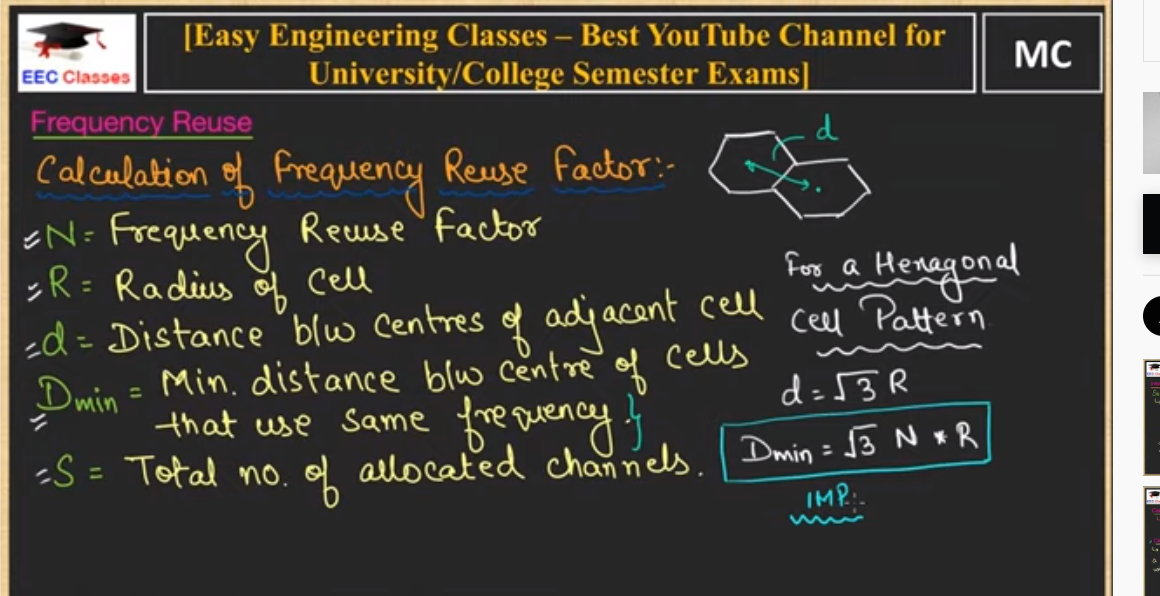 [Easy Engineering Classes – Best YouTube Channel for
University/College Semester Exams]
EEC Classes
MC
Frequency Reuse
Calculation of Frequency Reuse Factor:-
d
N = Frequency Reuse Factor
R = Radius of Cell
d = Distance b/w centres of adjacent cell
Dmin = Min. distance b/w centre of cells
that use same frequency.}
S = Total no. of allocated channels.
For a Hexagonal
Cell Pattern
d = √3 R
Dmin = √3 N * R
IMP:-